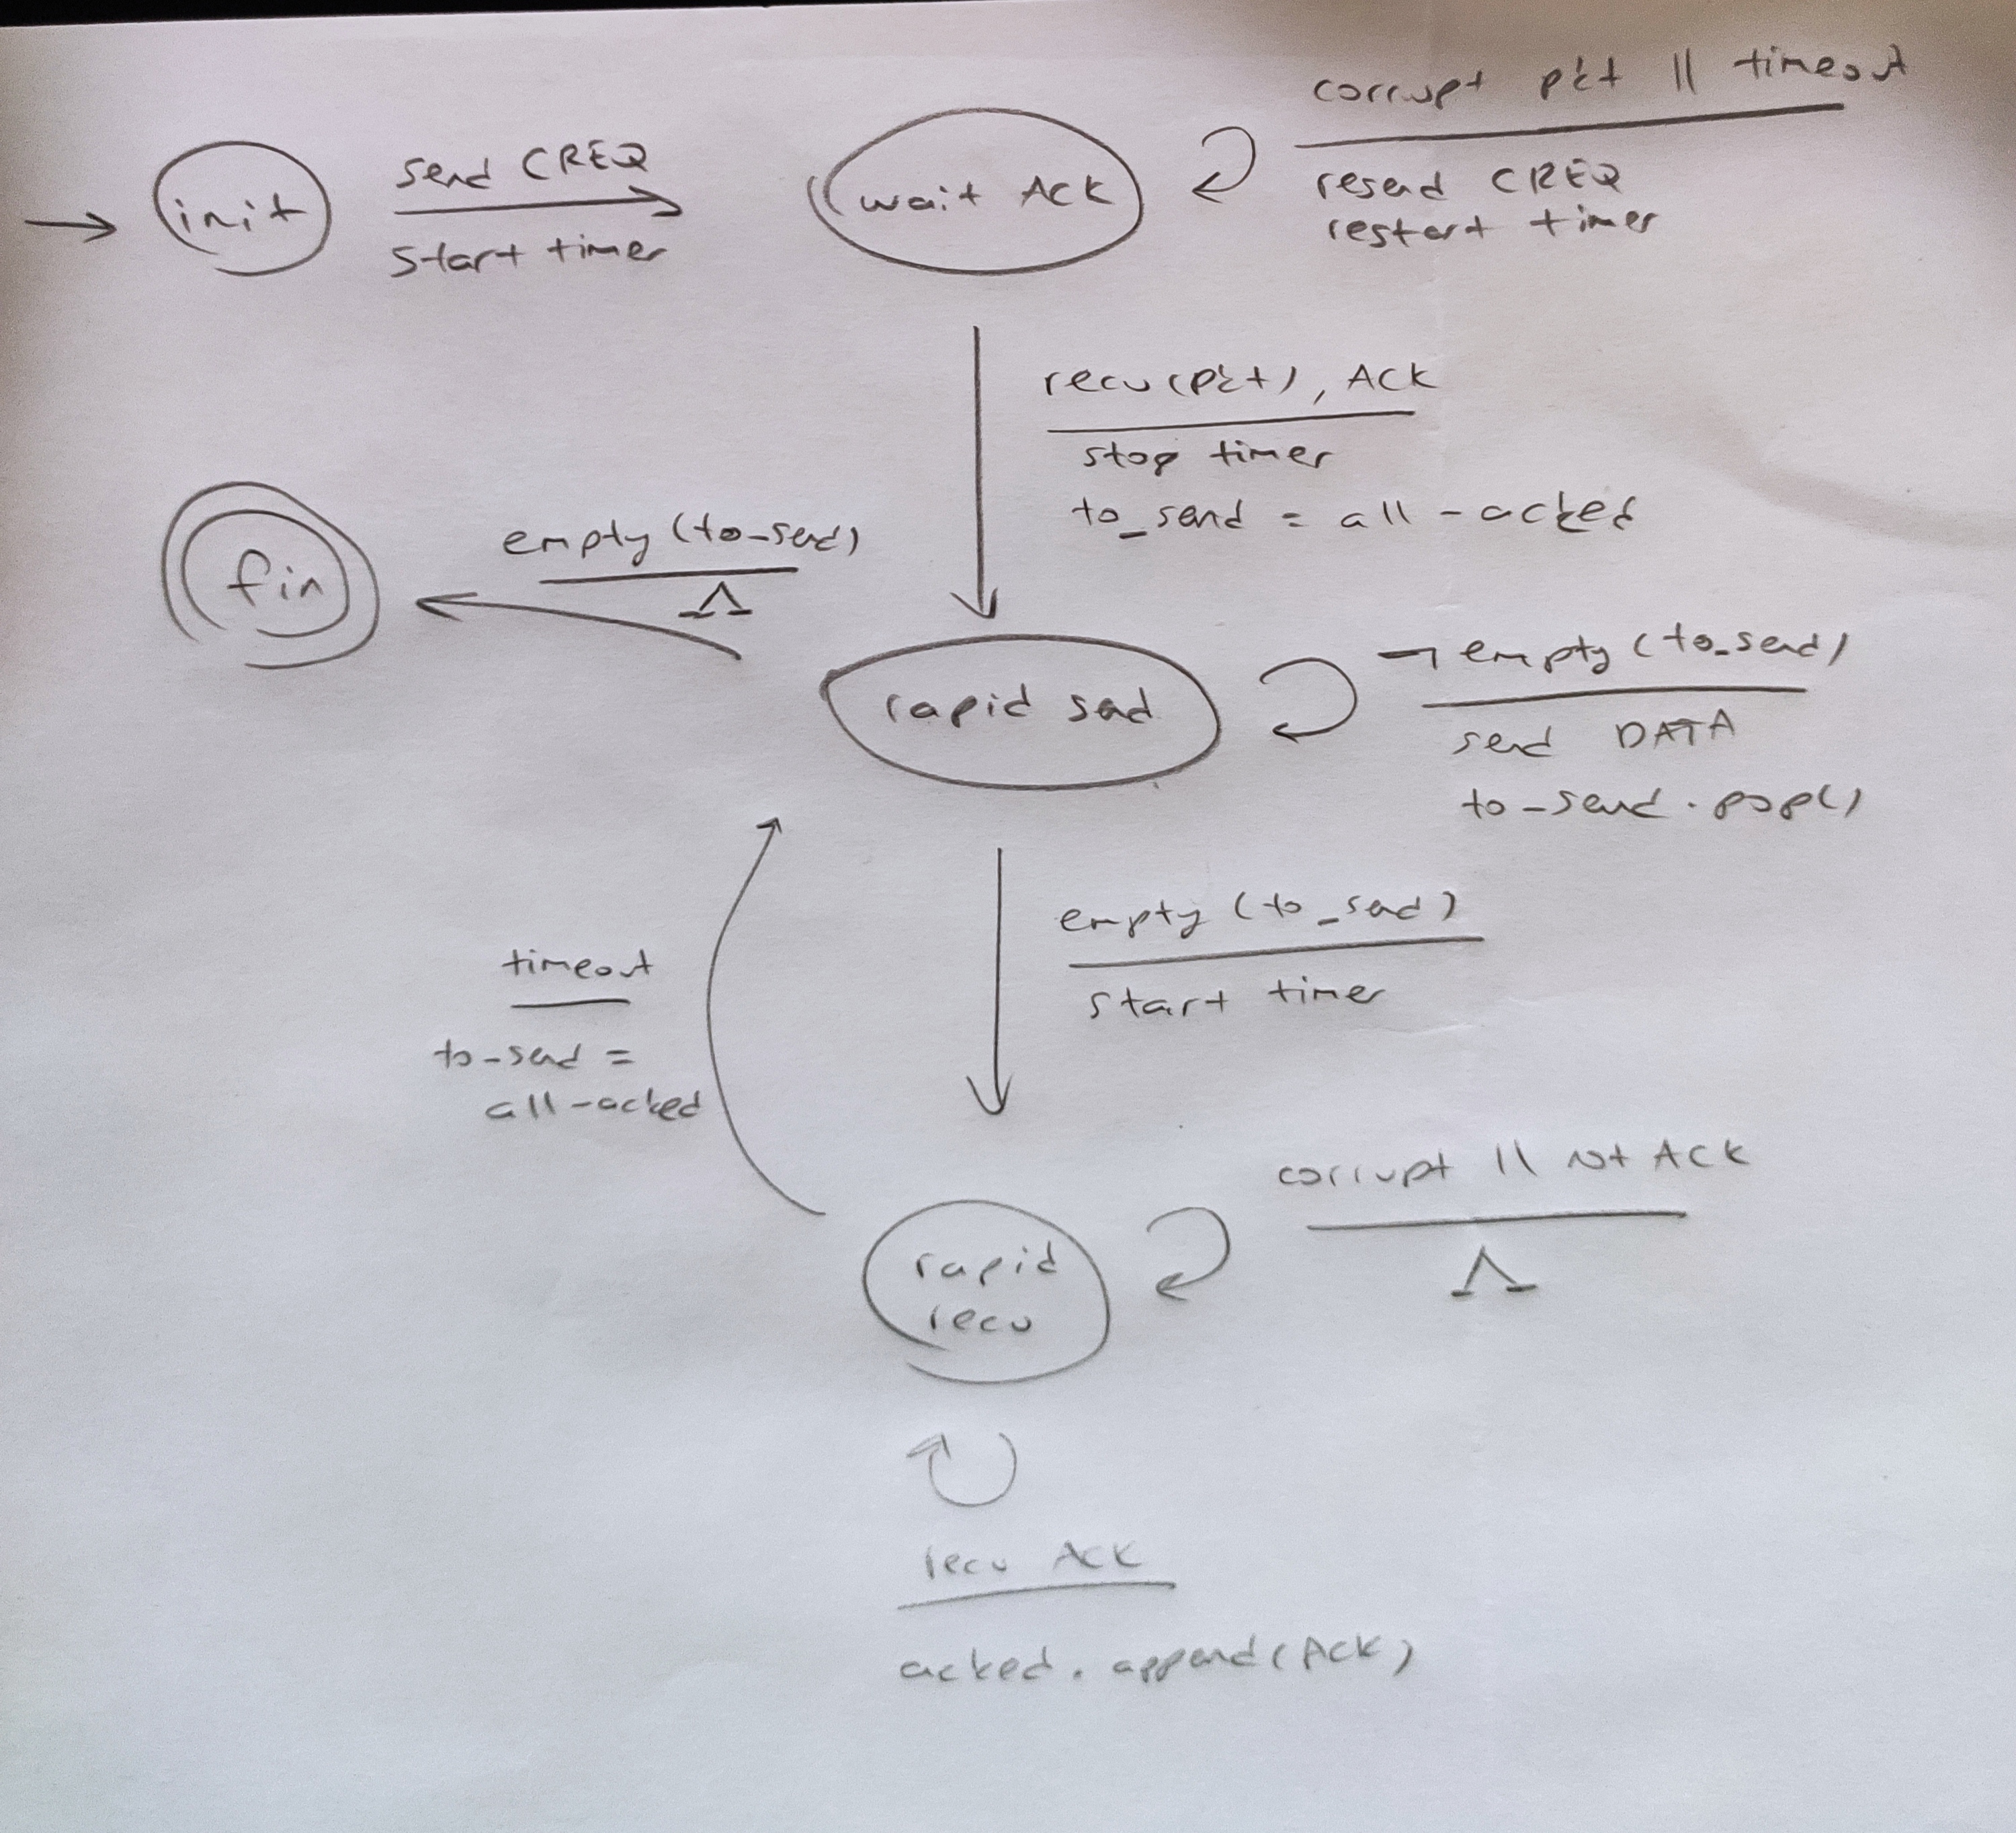 corrupt pkt || timeout
init
send CREQ
start timer
wait ACK
resend CREQ
restart timer
recv(pkt), ACK
stop timer
to_send = all - acked
fin
empty (to_send)
Λ
rapid send
¬ empty (to_send)
send DATA
to_send.pop()
empty (to_send)
start timer
timeout
to_send =
all - acked
rapid
recv
corrupt || not ACK
Λ
recv ACK
acked.append(ACK)